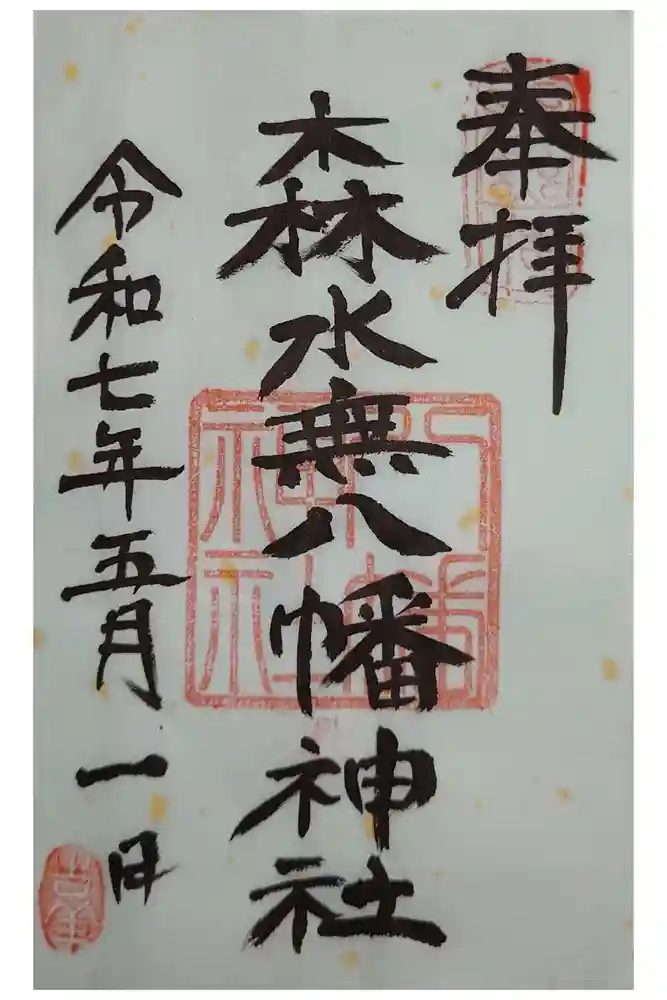 奉拝
森水無八幡神社
令和七年五月一日